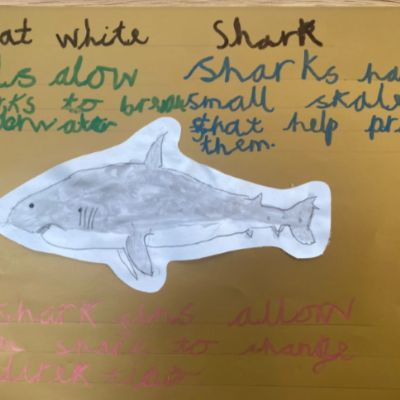 at white Shark
ls alow
rks to breath
derwater
Sharks ha
small skale
that help pr
them.
shark fins allow
shark to change
direktion